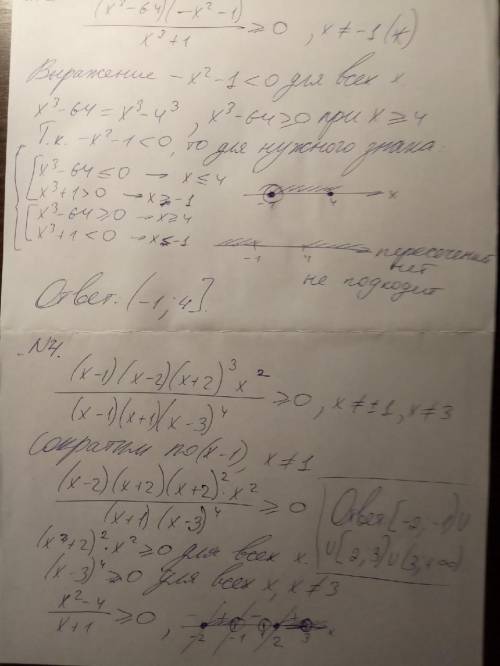 (x³-64)(-x²-1)
x³+1 ≥0 , x≠-1 (*)
Выражение -x²-1<0 для всех x
x³-64=x³-4³ , x³-64≥0 при x≥4
Т.к. -x²-1<0, то для нужного знака:
x³-64≤0 → x≤4
x³+1>0 → x>-1
-1 4 x
x³-64≥0 → x≥4
x³+1<0 → x<-1
-1 4
пересечений
нет
не подходит
Ответ: (-1;4].
N4.
(x-1)(x-2)(x+2)³x²
(x-1)(x+1)(x-3)⁴ ≥0, x≠±1, x≠3
Сократим на (x-1), x≠1
(x-2)(x+2)(x+2)²·x²
(x+1)(x-3)⁴ ≥0
Ответ: [-2;-1)∪
∪[2;3)∪(3;+∞)
(x+2)²·x²≥0 для всех x.
(x-3)⁴≥0 для всех x, x≠3
x²-4
x+1 ≥0,
-2 -1 1 2 3 x